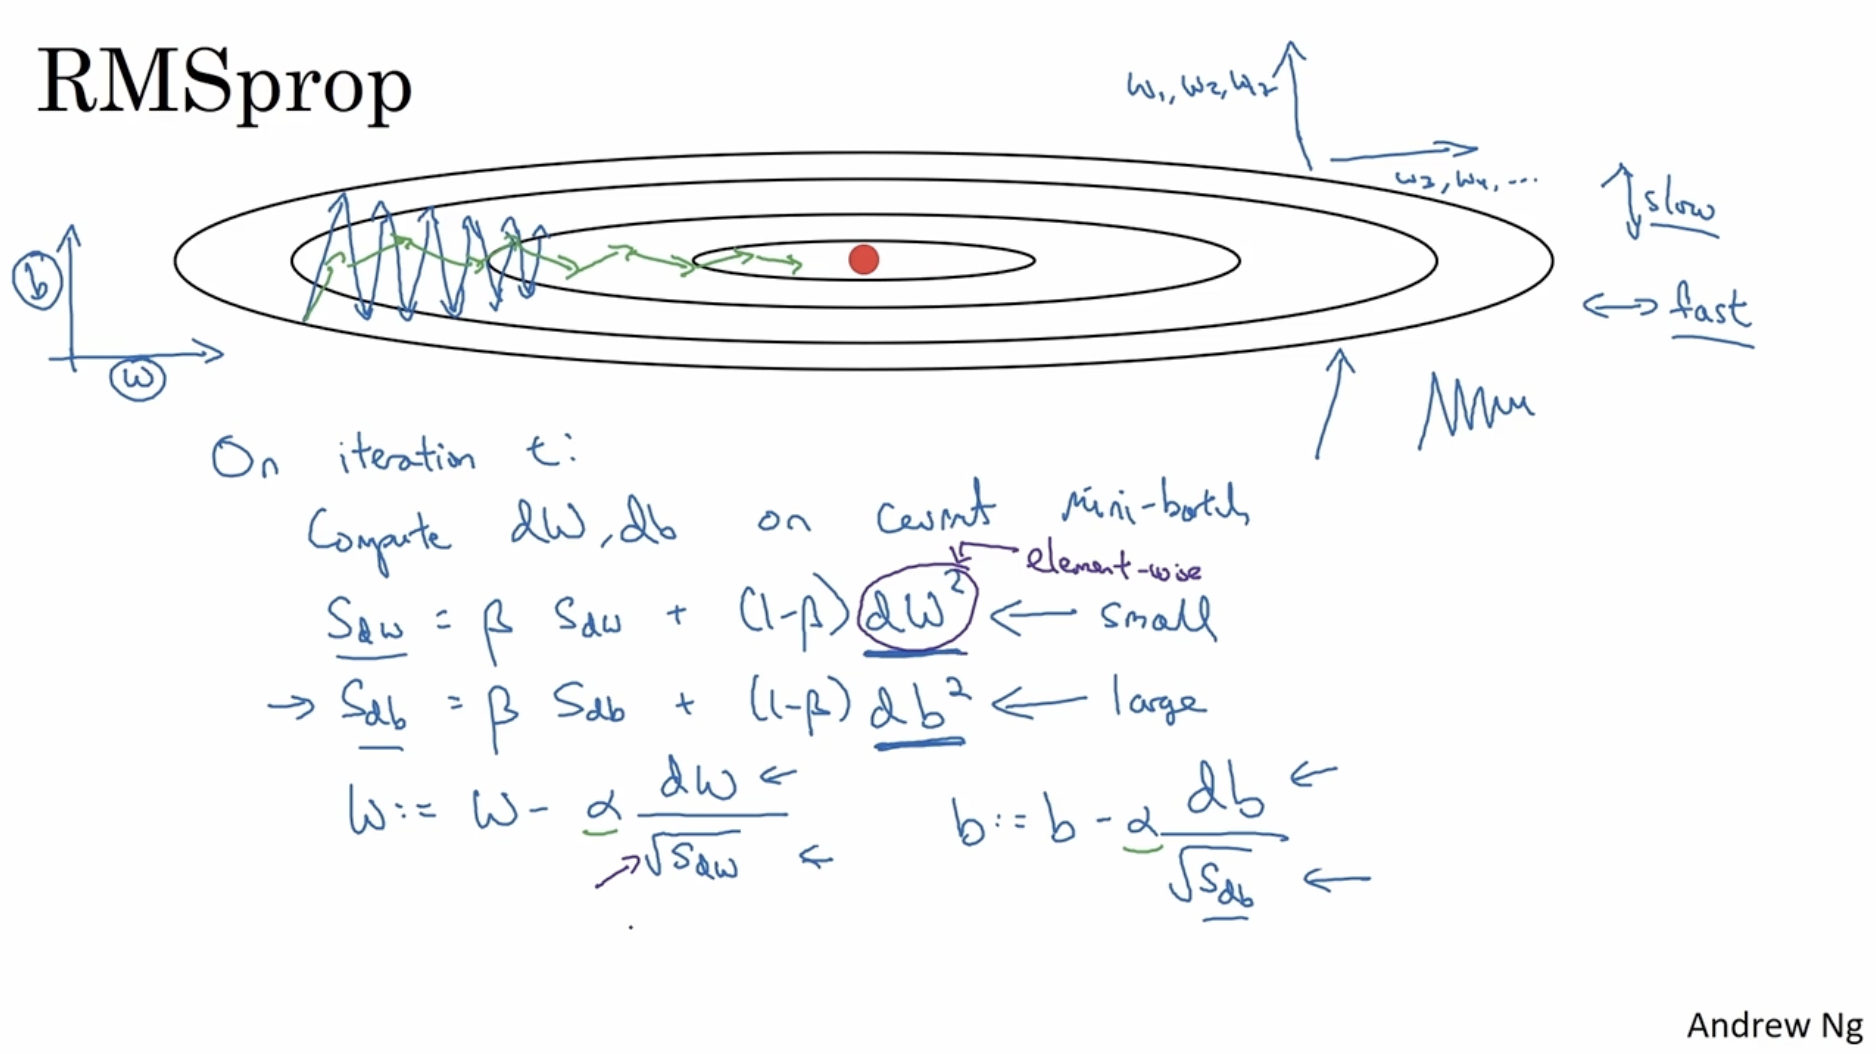 RMSprop
w₁, w₂, w₇
w₃, w₄, ...
slow
b
fast
w
On iteration t:
Compute dW, db on current mini-batch
element-wise
S_dw = β S_dw + (1-β) dW² ← small
→ S_db = β S_db + (1-β) db² ← large
W := W - α dW/√S_dw ← b := b - α db/√S_db ←
Andrew Ng